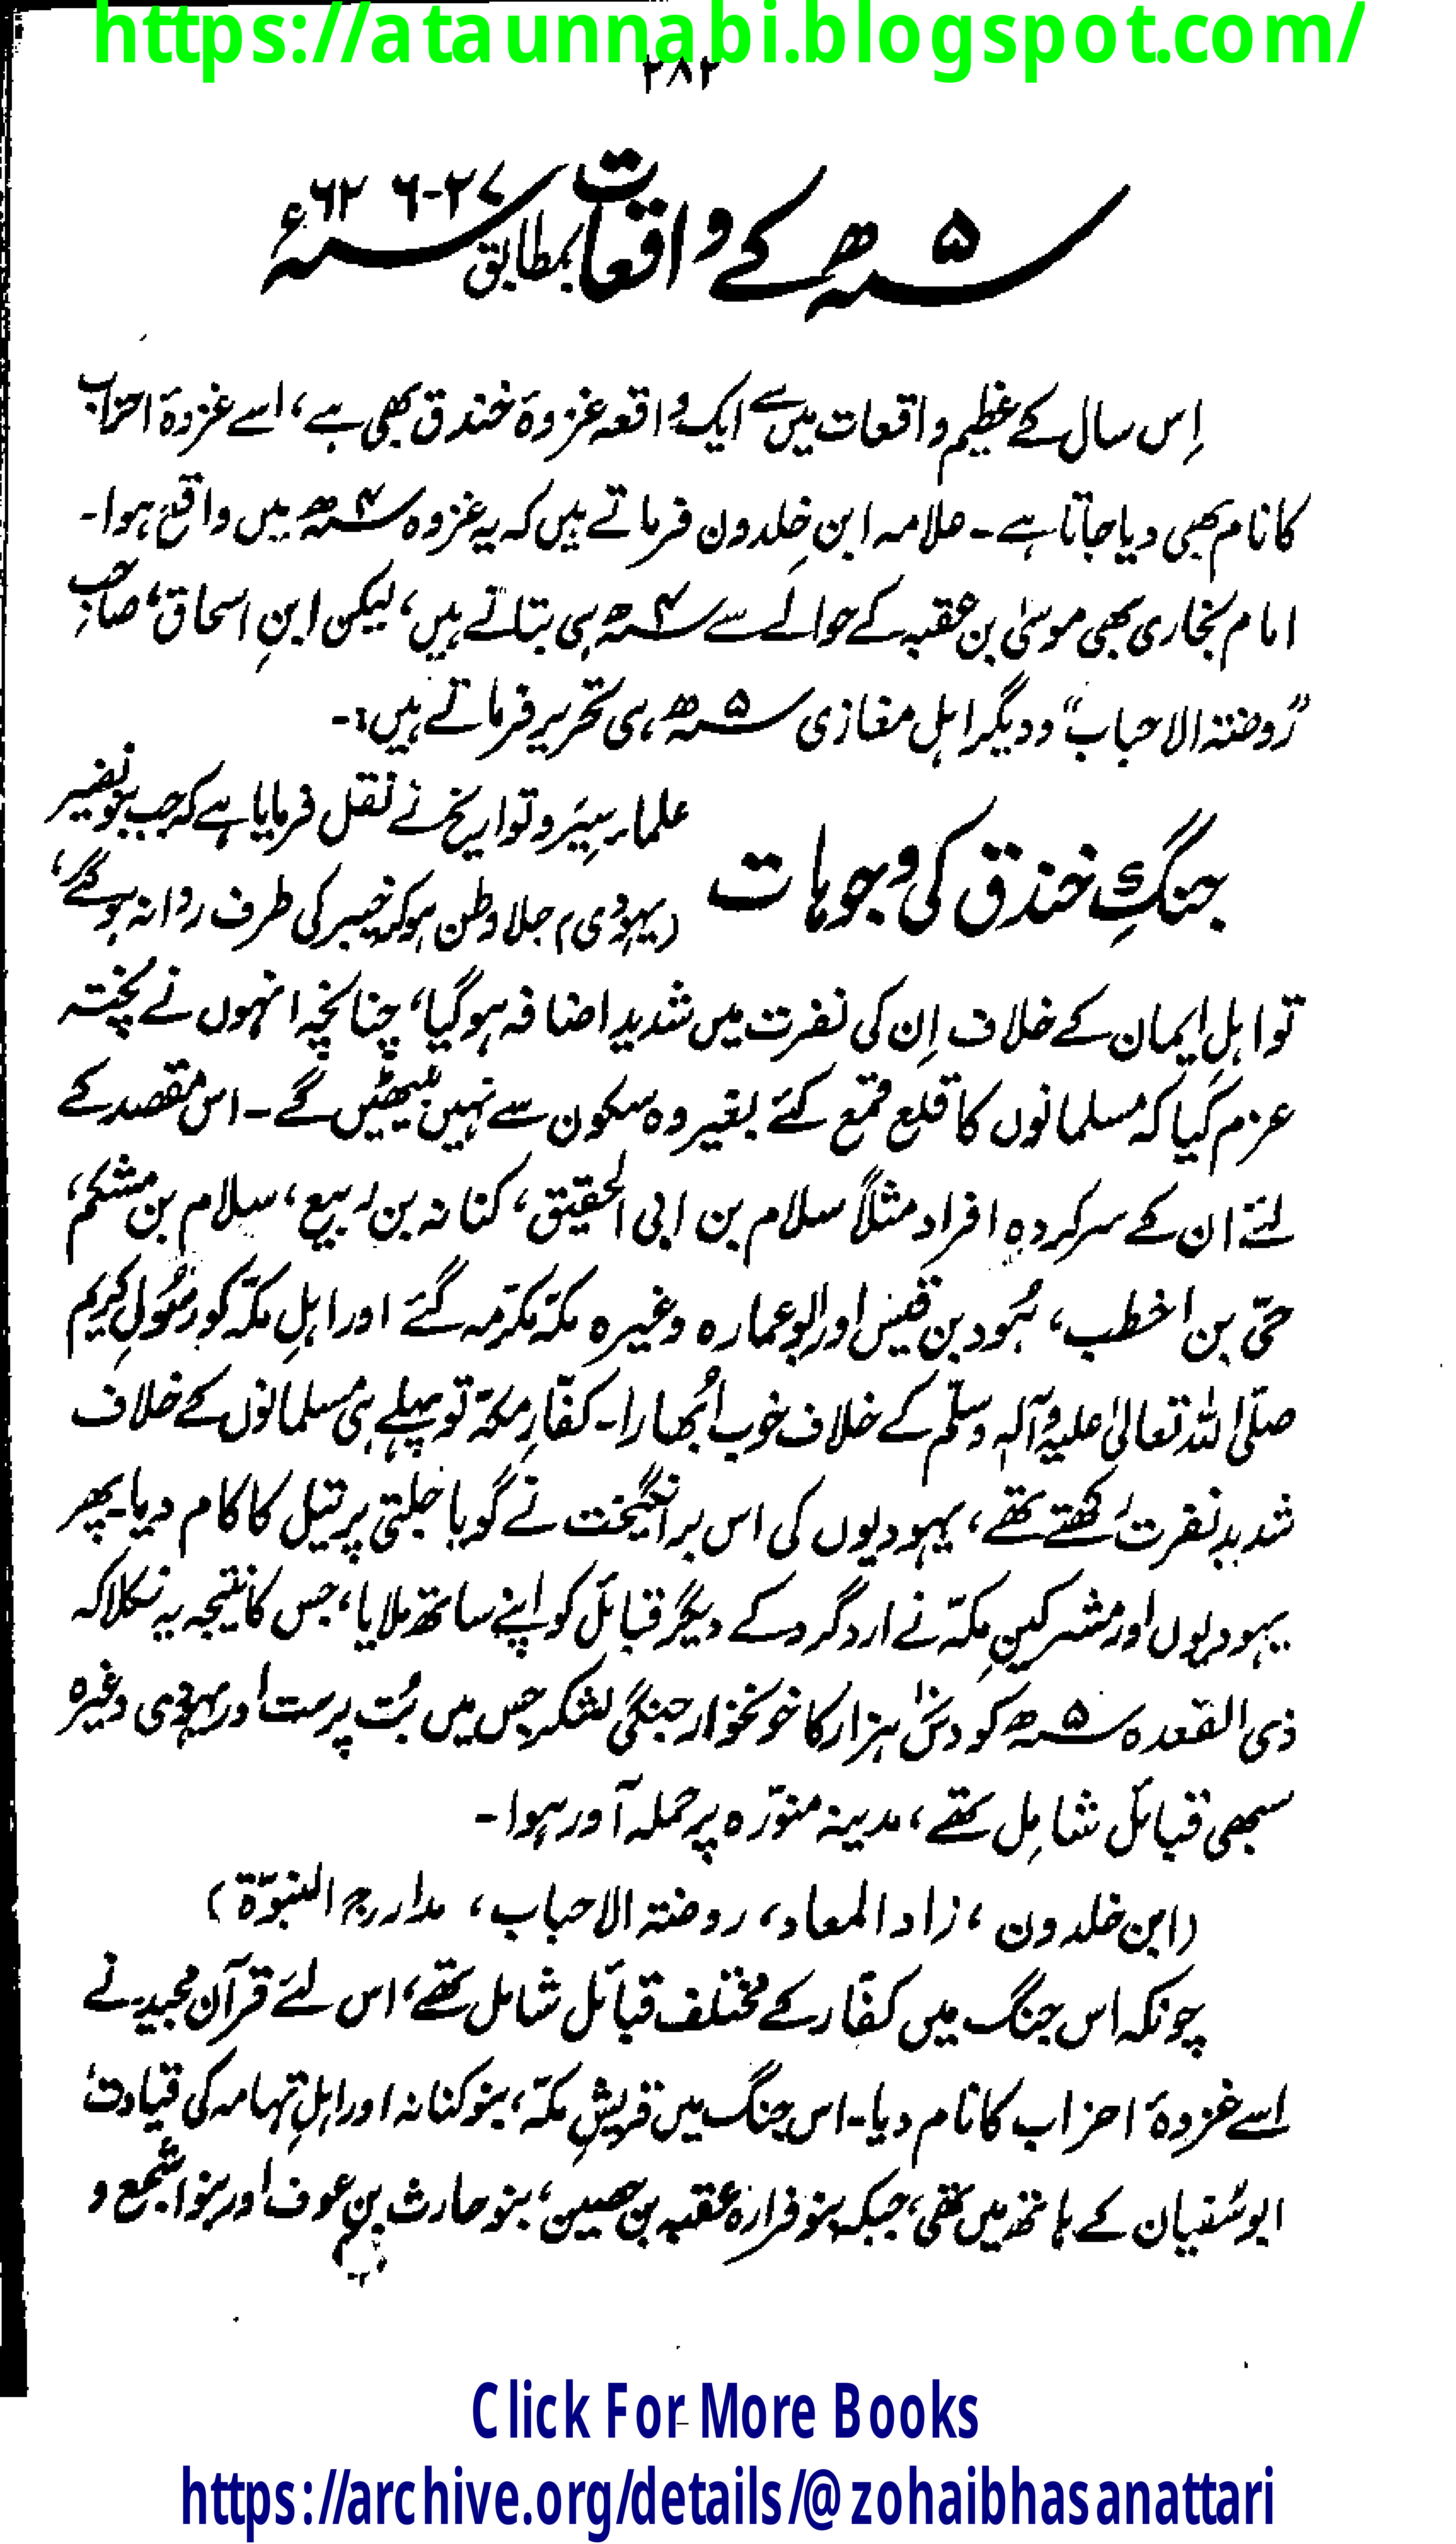 https://ataunnabi.blogspot.com/
۲۸۲
۵ھ کے واقعات بمطابق ۲۷-۶۲۶ء
اِس سال کے عظیم واقعات میں سے ایک واقعہ غزوۂ خندق بھی ہے، اسے غزوۂ احزاب
کا نام بھی دیا جاتا ہے۔ علامہ ابنِ خلدون فرماتے ہیں کہ یہ غزوہ ۴ھ میں واقع ہوا۔
امام بخاری بھی موسیٰ بن عقبہ کے حوالے سے ۴ھ ہی بتاتے ہیں، لیکن ابنِ اسحاق، صاحبِ
”روضتہ الاحباب“ و دیگر اہلِ مغازی ۵ھ ہی تحریر فرماتے ہیں:۔
جنگِ خندق کی وجوہات
علماء سِیَر و تواریخ نے نقل فرمایا ہے کہ جب بنو نضیر
(یہودی) جلا وطن ہو کر خیبر کی طرف روانہ ہو گئے،
تو اہلِ ایمان کے خلاف اِن کی نفرت میں شدید اضافہ ہو گیا، چنانچہ انہوں نے پُختہ
عزم کیا کہ مسلمانوں کا قلع قمع کئے بغیر وہ سکون سے نہیں بیٹھیں گے۔ اس مقصد کے
لئے ان کے سرکردہ افراد مثلاً سلام بن ابی الحقیق، کنانہ بن ربیع، سلام بن مشکم،
حیّ بن اخطب، ہُود بن قیس اور ابو عمارہ وغیرہ مکّہ مکرّمہ گئے اور اہلِ مکّہ کو رسُولِ کریم
صلّی اللہ تعالیٰ علیہ وآلہٖ وسلّم کے خلاف خوب اُبھارا۔ کفّارِ مکّہ تو پہلے ہی مسلمانوں کے خلاف
شدید نفرت رکھتے تھے، یہودیوں کی اس برانگیخت نے گویا جلتی پر تیل کا کام دیا۔ پھر
یہودیوں اور مشرکینِ مکّہ نے اردگرد کے دیگر قبائل کو اپنے ساتھ ملایا، جس کا نتیجہ یہ نکلا کہ
ذی القعدہ ۵ھ کو دس ہزار کا خونخوار جنگی لشکر جس میں بُت پرست اور یہودی وغیرہ
سبھی قبائل شامِل تھے، مدینہ منوّرہ پر حملہ آور ہوا۔
(ابن خلدون، زاد المعاد، روضتہ الاحباب، مدارج النبوّۃ)
چونکہ اس جنگ میں کفّار کے مختلف قبائل شامل تھے، اس لئے قرآن مجید نے
اسے غزوۂ احزاب کا نام دیا۔ اس جنگ میں قریشِ مکّہ، بنو کنانہ اور اہلِ تہامہ کی قیادت
ابوسُفیان کے ہاتھ میں تھی، جبکہ بنو فزارہ عقبہ بن حصین، بنو حارث بن عوف اور بنو اشجع و
Click For More Books
https://archive.org/details/@zohaibhasanattari